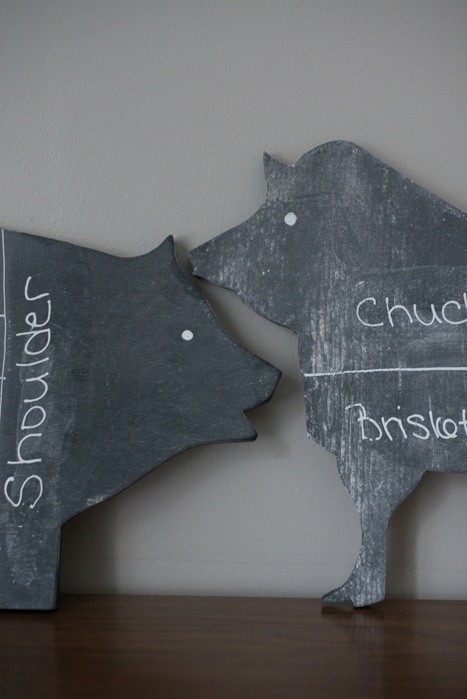 Shoulder
Chuc
Brisket